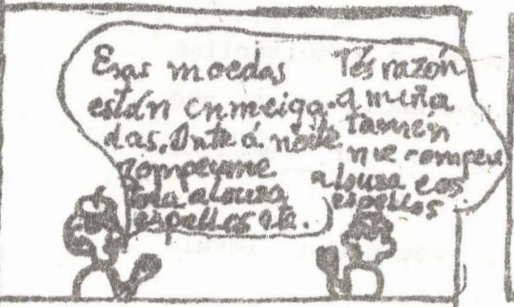 Esas moedas
están enmeiga-
das. Onte á noite
rompeume
toda a louza
espellos ete.
Tés razón
a miña
tamén
me rompeu
a louza e os
espellos.